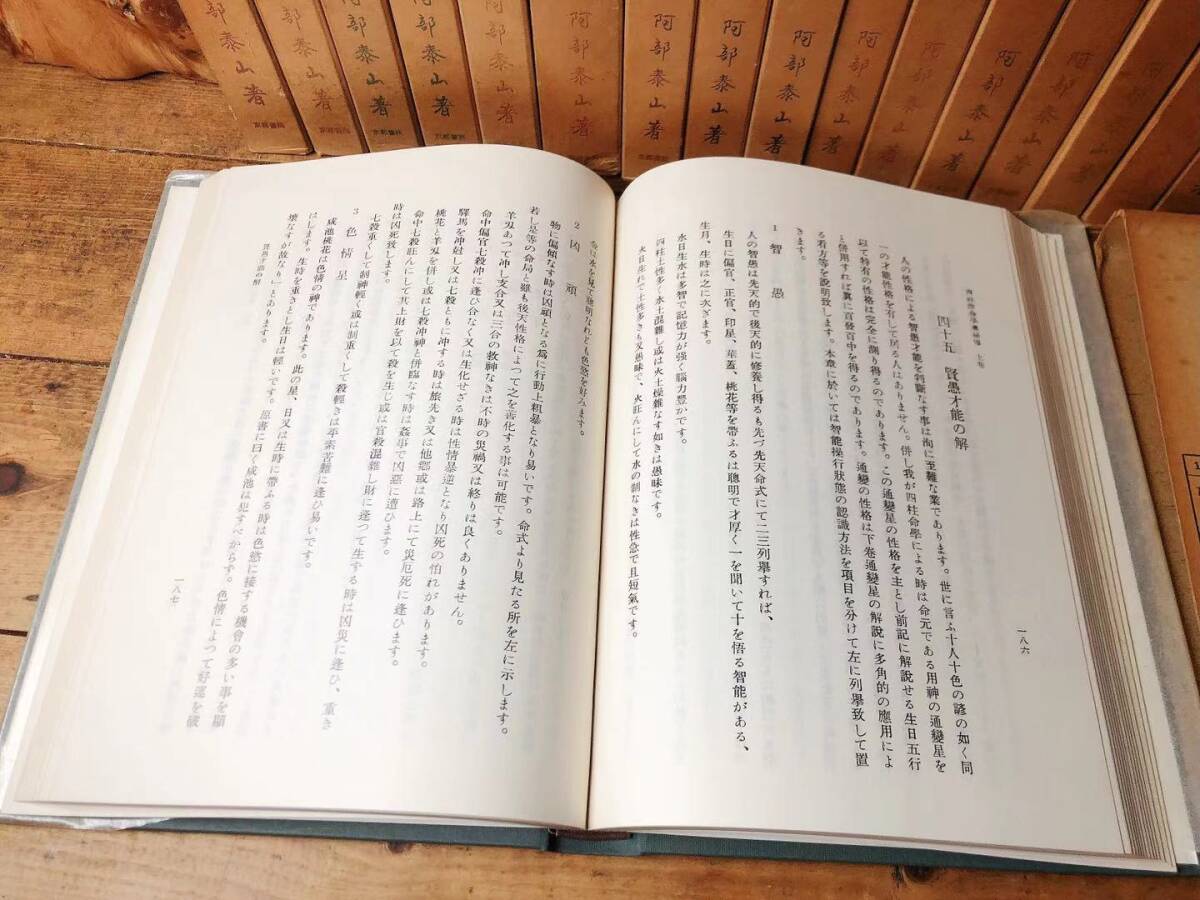 阿部泰山著
阿部泰山著
阿部泰山著
京都書院
阿部泰山著
京都書院
阿部泰山著
京都書院
阿部泰山著
阿部泰山著
京都書院
阿部泰山著
京都書院
阿部泰山著
京都書院
阿部泰山著
阿部泰山著
阿部泰山著
阿部泰山著
上卷
一八六
四十五 賢愚才能の解
人の性格による智愚才能を判斷なす事は洵に至難な業であります。世に言ふ十人十色の諺の如く同
一の才能性格を有して居る人はありません。併し我が四柱命學による時は命元である用神の通變星を
以て特有の性格は完全に測り得るのであります。この通變星の性格を主とし前記に解說せる生日五行
と併用すれば眞に百發百中を得るのであります。通變の性格は下卷通變星の解說に多角的の應用によ
る看方等を說明致します。本章に於いては智能操行狀態の認識方法を項目を分けて左に列擧致して置
きます。
1 智愚
人の智愚は先天的で後天的に修養し得るも先づ先天命式にて二三列擧すれば、
生日に偏官、正官、印星、華蓋、桃花等を帶ふるは聰明で才厚く一を聞いて十を悟る智能がある、
生月、生時は之に次ぎます。
水日生水は多智で記憶力が强く腦力豐かです。
四柱土性多く水土混雜し或は火土燥雜なす如きは愚昧です。
火日生れで土性多きも又愚昧で、火旺んにして水の制なきは性急で且短氣です。
命は水を見て聰明なれども色慾を好みます。
2 凶頑
物に偏傾なす時は凶頑となる爲に行動上粗暴となり易いです。命式より見たる所を左に示します。
若し是等の命局と雖も後天性格によつて之を善化する事は可能です。
羊刄あつて冲し支合又は三合の救神なきは不時の災禍又は終りは良くありません。
命中偏官七殺冲に逢ひ合なく又は生化せざる時は性情暴逆となり凶死の怕れがあります。
驛馬を冲尅し又は七殺ともに冲する時は旅先き又は他鄕或は路上にて災厄死に逢ひます。
桃花と羊刄を併し或は七殺冲神と併臨なす時は姦事で凶惡に遭ひます。
命中七殺旺んにして其上財を以て殺を生じ或は官殺混雜し財に逢つて生する時は凶災に逢ひ、重き
時は凶死致します。
七殺重くして制神輕く或は制重くして殺輕きは平素苦難に逢ひ易いです。
3 色情星
咸池桃花は色情の神であります。此の星、日又は生時に帶ふる時は色慾に接する機會の多い事を顯
はします。生時を重きとし生日は輕いです。原書に曰く咸池は犯すべからず。色情によつて好運を破
壞なすが故なり」とあります。
賢愚才能の解
一八七